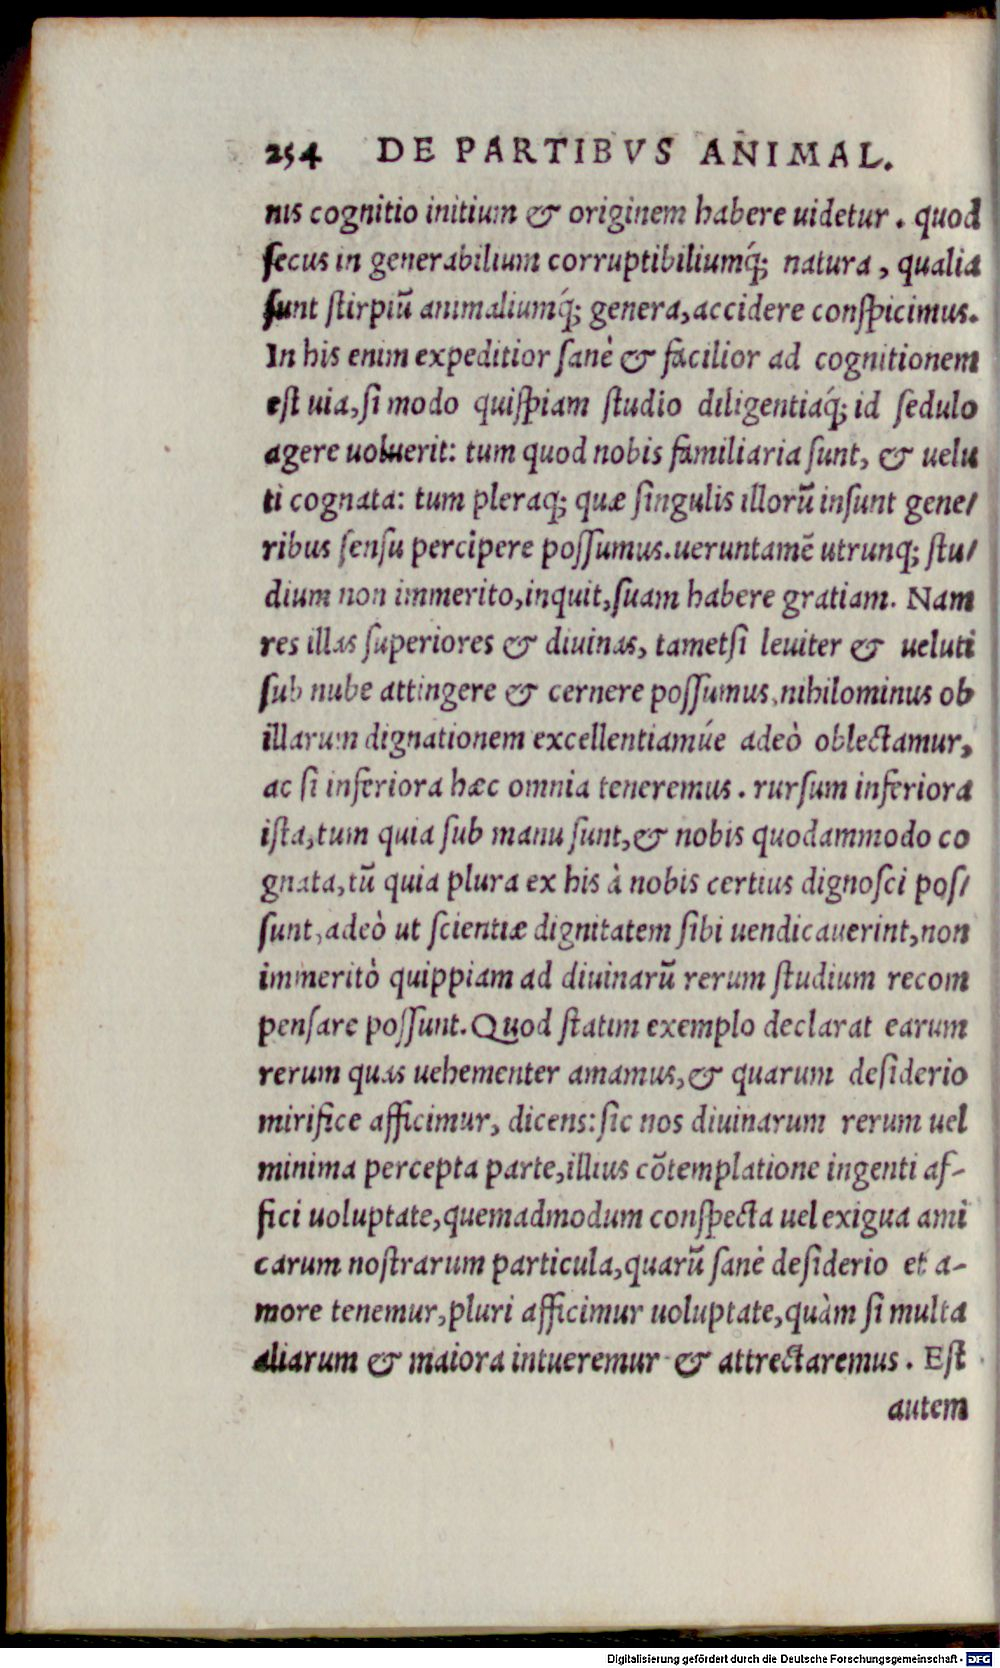 254 DE PARTIBVS ANIMAL.
nis cognitio initium & originem habere uidetur. quod
ſecus in generabilium corruptibiliumq́; natura, qualia
ſunt ſtirpiū animaliumq́; genera, accidere conſpicimus.
In his enim expeditior ſanè & facilior ad cognitionem
eſt uia, ſi modo quiſpiam ſtudio diligentiaq́; id ſedulo
agere uoluerit: tum quod nobis familiaria ſunt, & uelu
ti cognata: tum pleraq; quæ ſingulis illorū inſunt gene/
ribus ſenſu percipere poſſumus. ueruntamē utrunq; ſtu/
dium non immerito, inquit, ſuam habere gratiam. Nam
res illas ſuperiores & diuinas, tametſi leuiter & ueluti
ſub nube attingere & cernere poſſumus, nihilominus ob
illarum dignationem excellentiamúe adeò oblectamur,
ac ſi inferiora hæc omnia teneremus. rurſum inferiora
iſta, tum quia ſub manu ſunt, & nobis quodammodo co
gnata, tū quia plura ex his à nobis certius dignoſci poſ/
ſunt, adeò ut ſcientiæ dignitatem ſibi uendicauerint, non
immeritò quippiam ad diuinarū rerum ſtudium recom
penſare poſſunt. Quod ſtatim exemplo declarat earum
rerum quas uehementer amamus, & quarum deſiderio
mirifice afficimur, dicens: ſic nos diuinarum rerum uel
minima percepta parte, illius cōtemplatione ingenti af-
fici uoluptate, quemadmodum conſpecta uel exigua ami
carum noſtrarum particula, quarū ſanè deſiderio et a-
more tenemur, pluri afficimur uoluptate, quàm ſi multa
aliarum & maiora intueremur & attrectaremus. Eſt
autem
Digitalisierung gefördert durch die Deutsche Forschungsgemeinschaft - DFG